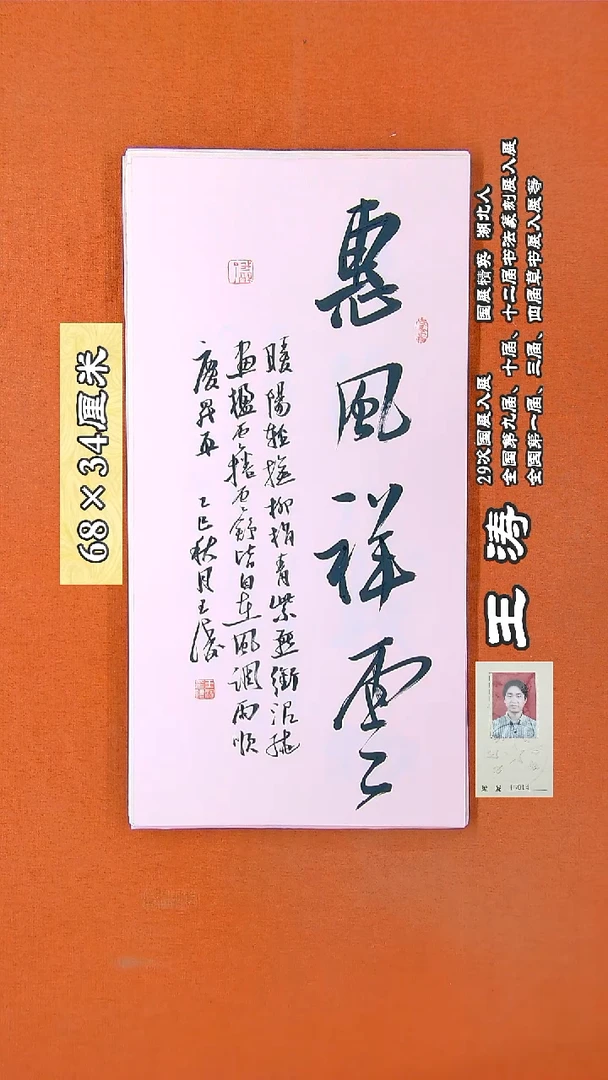 惠風祥雲
暖陽輕撫柳梢青紫燕銜泥繞
畫楹雲捲雲舒皆自在風調雨順
慶昇平 乙巳秋月王濤
68×34厘米
王 涛
29次国展入展 国展精英 湖北人
全国第九届、十届、十二届书法篆刻展入展
全国第一届、三届、四届草书展入展等